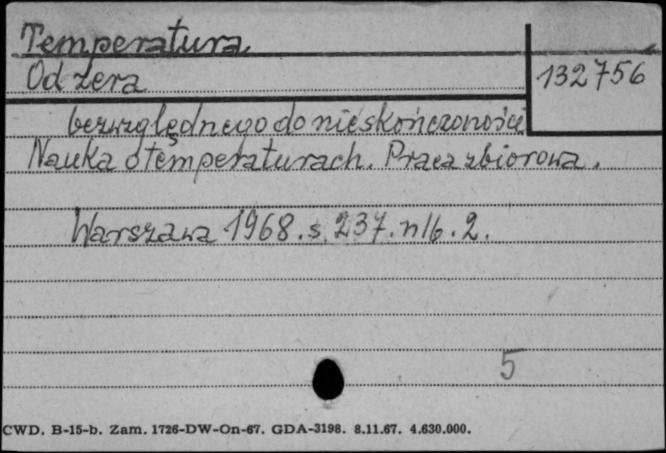 Temperatura
Od zera
132756
bezwzględnego do nieskończoności
Nauka o temperaturach. Praca zbiorowa.
Warszawa 1968. s. 237. nlb. 2.
5
CWD. B-15-b. Zam. 1726-DW-On-67. GDA-3198. 8.11.67. 4.630.000.